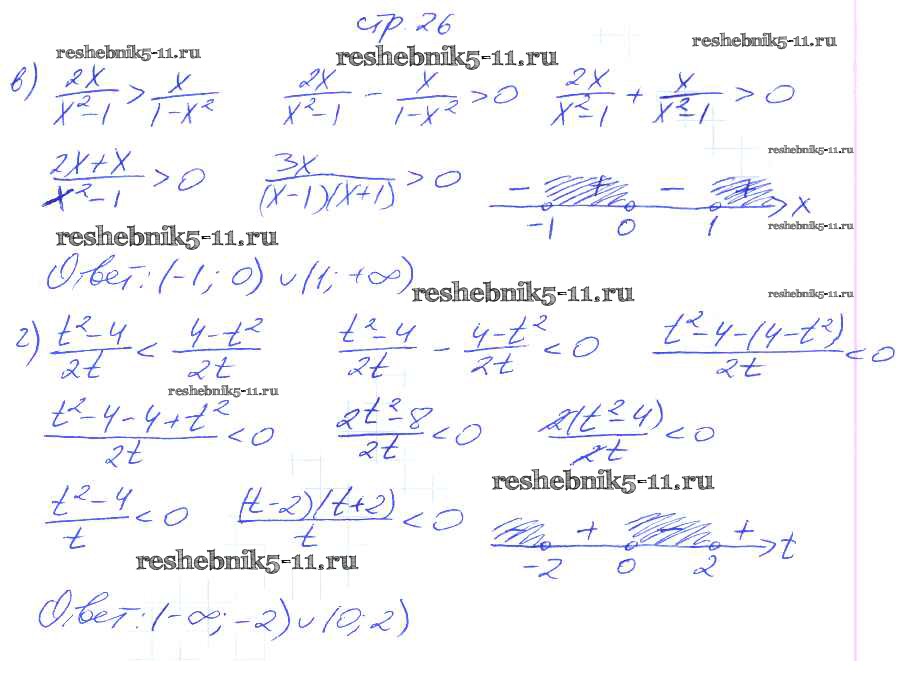 стр. 26
reshebnik5-11.ru reshebnik5-11.ru reshebnik5-11.ru
в) 2x/(x²-1) > x/(1-x²) 2x/(x²-1) - x/(1-x²) > 0 2x/(x²-1) + x/(x²-1) > 0
reshebnik5-11.ru
(2x+x)/(x²-1) > 0 3x/((x-1)(x+1)) > 0 - + - + x
-1 0 1
reshebnik5-11.ru reshebnik5-11.ru
Ответ: (-1; 0) ∪ (1; +∞)
reshebnik5-11.ru reshebnik5-11.ru
г) (t²-4)/2t < (4-t²)/2t (t²-4)/2t - (4-t²)/2t < 0 (t²-4-(4-t²))/2t < 0
reshebnik5-11.ru
(t²-4-4+t²)/2t < 0 (2t²-8)/2t < 0 2(t²-4)/2t < 0
reshebnik5-11.ru
(t²-4)/t < 0 (t-2)(t+2)/t < 0 + + t
-2 0 2
reshebnik5-11.ru
Ответ: (-∞; -2) ∪ (0; 2)